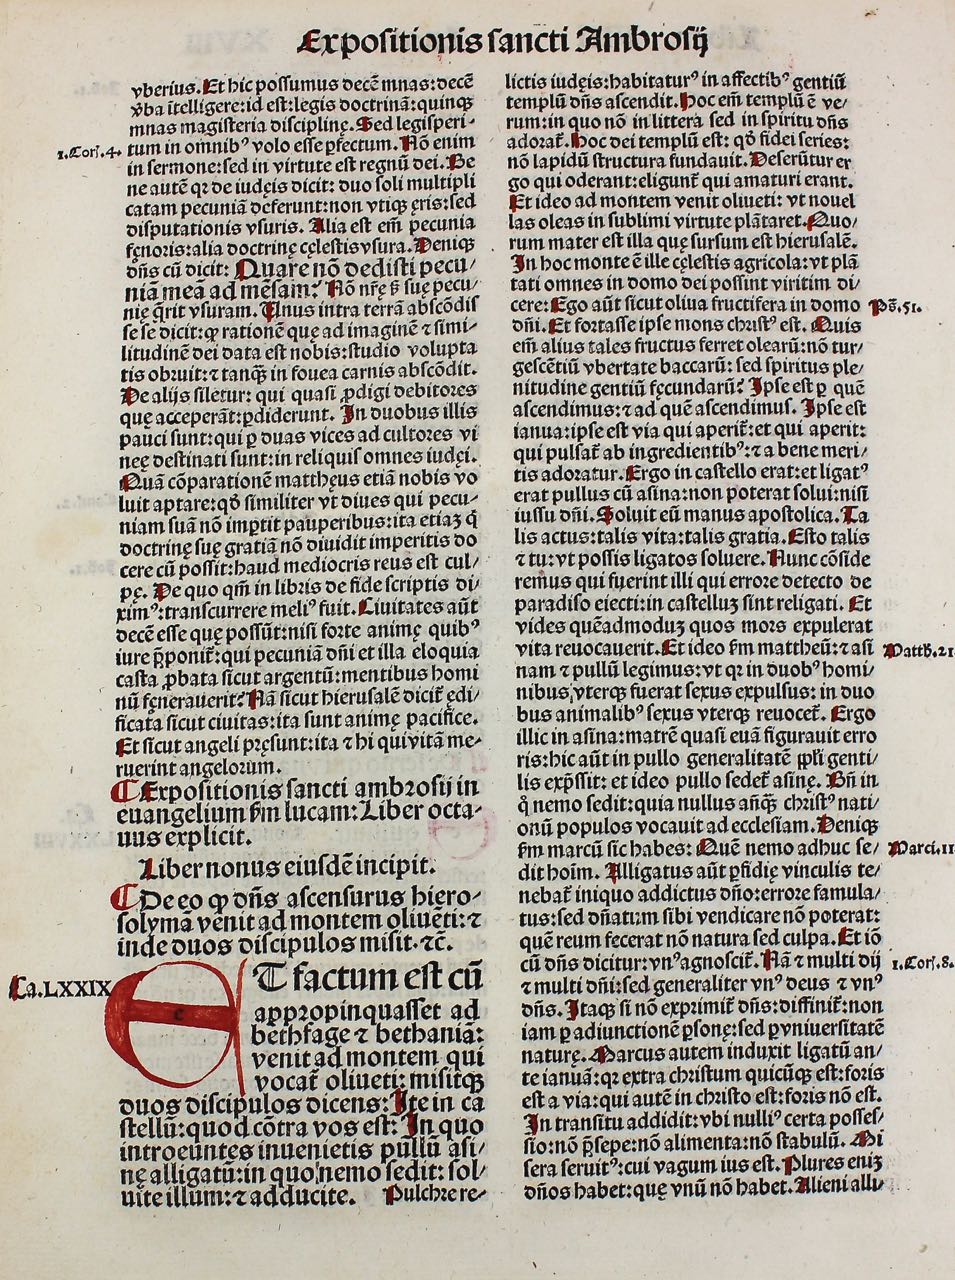 Expositionis sancti Ambrosij
vberius. Et hic possumus decē mnas: decē
v̾ba ītelligere: id est: legis doctrinā: quinqꝫ
mnas magisteria disciplinę. Sed legisperi-
1. Cor. 4.
tum in omnibꝰ volo esse ꝑfectum. Nō enim
in sermone: sed in virtute est regnū dei. Be
ne autē qꝛ de iudeis dicit: duo soli multipli
catam pecuniā deferunt: non vtiqꝫ ęris: sed
disputationis vsuris. Alia est em̄ pecunia
fęnoris: alia doctrinę cęlestis vsura. Deniqꝫ
dn̄s cū dicit: Quare nō dedisti pecu/
niā meā ad mēsam? Nō nr̄ę ꝫ suę pecu/
nię q̄rit vsuram. Unus intra terrā abscōdis
se se dicit: qꝛ rationē quę ad imaginē ⁊ simi-
litudinē dei data est nobis: studio volupta
tis obruit: ⁊ tanqꝫ in fouea carnis abscōdit.
De alijs siletur: qui quasi ꝓdigi debitores
que acceperāt: ꝑdiderunt. In duobus illis
pauci sunt: qui ꝑ duas vices ad cultores vi
neę destinati sunt: in reliquis omnes iudęi.
Quā cōparationē matthęus etiā nobis vo
luit aptare: qd̄ similiter vt diues qui pecu-
niam suā nō imꝑtit pauperibus: ita etiaꝫ q̇
doctrinę suę gratiā nō diuidit imperitis do
cere cū possit: haud mediocris reus est cul-
pę. De quo qm̄ in libris de fide scriptis di-
ximꝰ: transcurrere meliꝰ fuit. Ciuitates aūt
decē esse quę possūt: nisi forte animę quibꝰ
iure p̄ponit̄: qui pecuniā dn̄i et illa eloquia
casta ꝓbata sicut argentū: mentibus homi
nū fęnerauerit? Nā sicut hierusalē dicit̄ ędi/
ficata sicut ciuitas: ita sunt animę pacifice.
Et sicut angeli pręsunt: ita ⁊ hi qui vitā me/
ruerint angelorum.
¶ Expositionis sancti ambrosij in
euangelium s̄m lucam: Liber octa-
uus explicit.
Liber nonus eiusdē incipit.
¶ De eo qꝙ dn̄s ascensurus hiero-
solymā venit ad montem oliuēti: ⁊
inde duos discipulos misit. ⁊c̄.
Ca. LXXIX
ET factum est cū
appropinquasset ad
bethfage ⁊ bethaniā:
venit ad montem qui
vocat̄ oliueti: misitqꝫ
duos discipulos dicens: Ite in ca
stellū: quod cōtra vos est: In quo
introeuntes inuenietis pullū asi/
nę alligatū: in quo nemo sedit: sol/
uite illum: ⁊ adducite. Pulchre re-
lictis iudęis: habitaturꝰ in affectibꝰ gentiū
templū dn̄s ascendit. Hoc em̄ templū ē ve/
rum: in quo nō in littera sed in spiritu dn̄s
adorat̄. Hoc dei templū est: qd̄ fidei series:
nō lapidū structura fundauit. Deserūtur er
go qui oderant: eligunt̄ qui amaturi erant.
Et ideo ad montem venit oliueti: vt nouel
las oleas in sublimi virtute plātaret. Quo/
rum mater est illa quę sursum est hierusalē.
In hoc monte ē ille cęlestis agricola: vt plā
tati omnes in domo dei possint viritim di/
cere: Ego aūt sicut oliua fructifera in domo
Ps̄. 51.
dn̄i. Et fortasse ipse mons christꝰ est. Quis
em̄ alius tales fructus ferret olearū: nō tur/
gescētiū vbertate baccarū: sed spiritus ple/
nitudine gentiū fęcundarū? Ipse est ꝑ quē
ascendimus: ⁊ ad quē ascendimus. Ipse est
ianua: ipse est via qui aperit̄: et qui aperit:
qui pulsat̄ ab ingredientibꝰ: ⁊ a bene meri/
tis adoratur. Ergo in castello erat: et ligatꝰ
erat pullus cū asina: non poterat solui: nisi
iussu dn̄i. Soluit eū manus apostolica. Ta
lis actus: talis vita: talis gratia. Esto talis
⁊ tu: vt possis ligatos soluere. Nunc cōside
remus qui fuerint illi qui errore detecto de
paradiso eiecti: in castelluꝫ sint religati. Et
vides quēadmoduꝫ quos mors expulerat
vita reuocauerit. Et ideo s̄m mattheū: ⁊ asi
Matth. 21
nam ⁊ pullū legimus: vt qꝛ in duobꝰ homi/
nibus vterqꝫ fuerat sexus expulsus: in duo
bus animalibꝰ sexus vterqꝫ reuocet̄. Ergo
illic in asina: matrē quasi euā figurauit erro
ris: hic aūt in pullo generalitatē ppl̄i genti/
lis exp̄ssit: et ideo pullo sedet̄ asinę. Bn̄ in
q̊ nemo sedit: quia nullus an̄qꝫ christꝰ nati/
onū populos vocauit ad ecclesiam. Deniqꝫ
s̄m marcū sic habes: Quē nemo adhuc se/
Marci. 11
dit hoīm. Alligatus aūt ꝑfidię vinculis te/
nebat̄ iniquo addictus dn̄o: errore famula/
tus: sed dn̄atum sibi vendicare nō poterat:
quē reum fecerat nō natura sed culpa. Et iō
cū dn̄s dicitur: vnꝰ agnoscit̄. Nā ⁊ multi dij
1. Cor. 8.
⁊ multi dn̄i: sed generaliter vnꝰ deus ⁊ vnꝰ
dn̄s. Itaqꝫ si nō exprimit̄ dn̄s: diffinit̄: non
iam ꝑ adiunctionē ꝑsonę: sed ꝑ vniuersitatē
naturę. Marcus autem induxit ligatū an/
te ianuā: qꝛ extra christum quicūqꝫ est: foris
est a via: qui autē in christo est: foris nō est.
In transitu addidit: vbi nulliꝰ certa posses/
sio: nō p̄sepe: nō alimenta: nō stabulū. Mi
sera seruitꝰ: cui vagum ius est. Plures eniꝫ
dn̄os habet: quę vnū nō habet. Alieni alli/